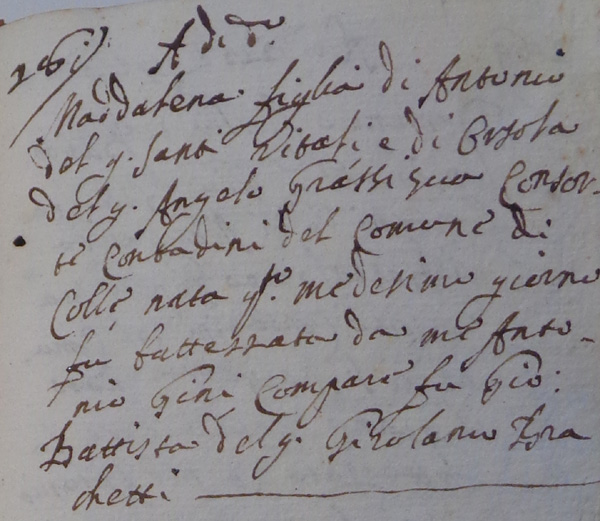 A di d.
Maddalena figlia di Antonio
del q. Santi Vitali e di Orsola
del q. Angelo Grassi sua Consor-
te Contadini del Comune di
Colle nata q.to medesimo giorno
fu battezzata da me Anto-
nio Gini Compare fu Gio:
Battista del q. Girolamo Bra
chetti